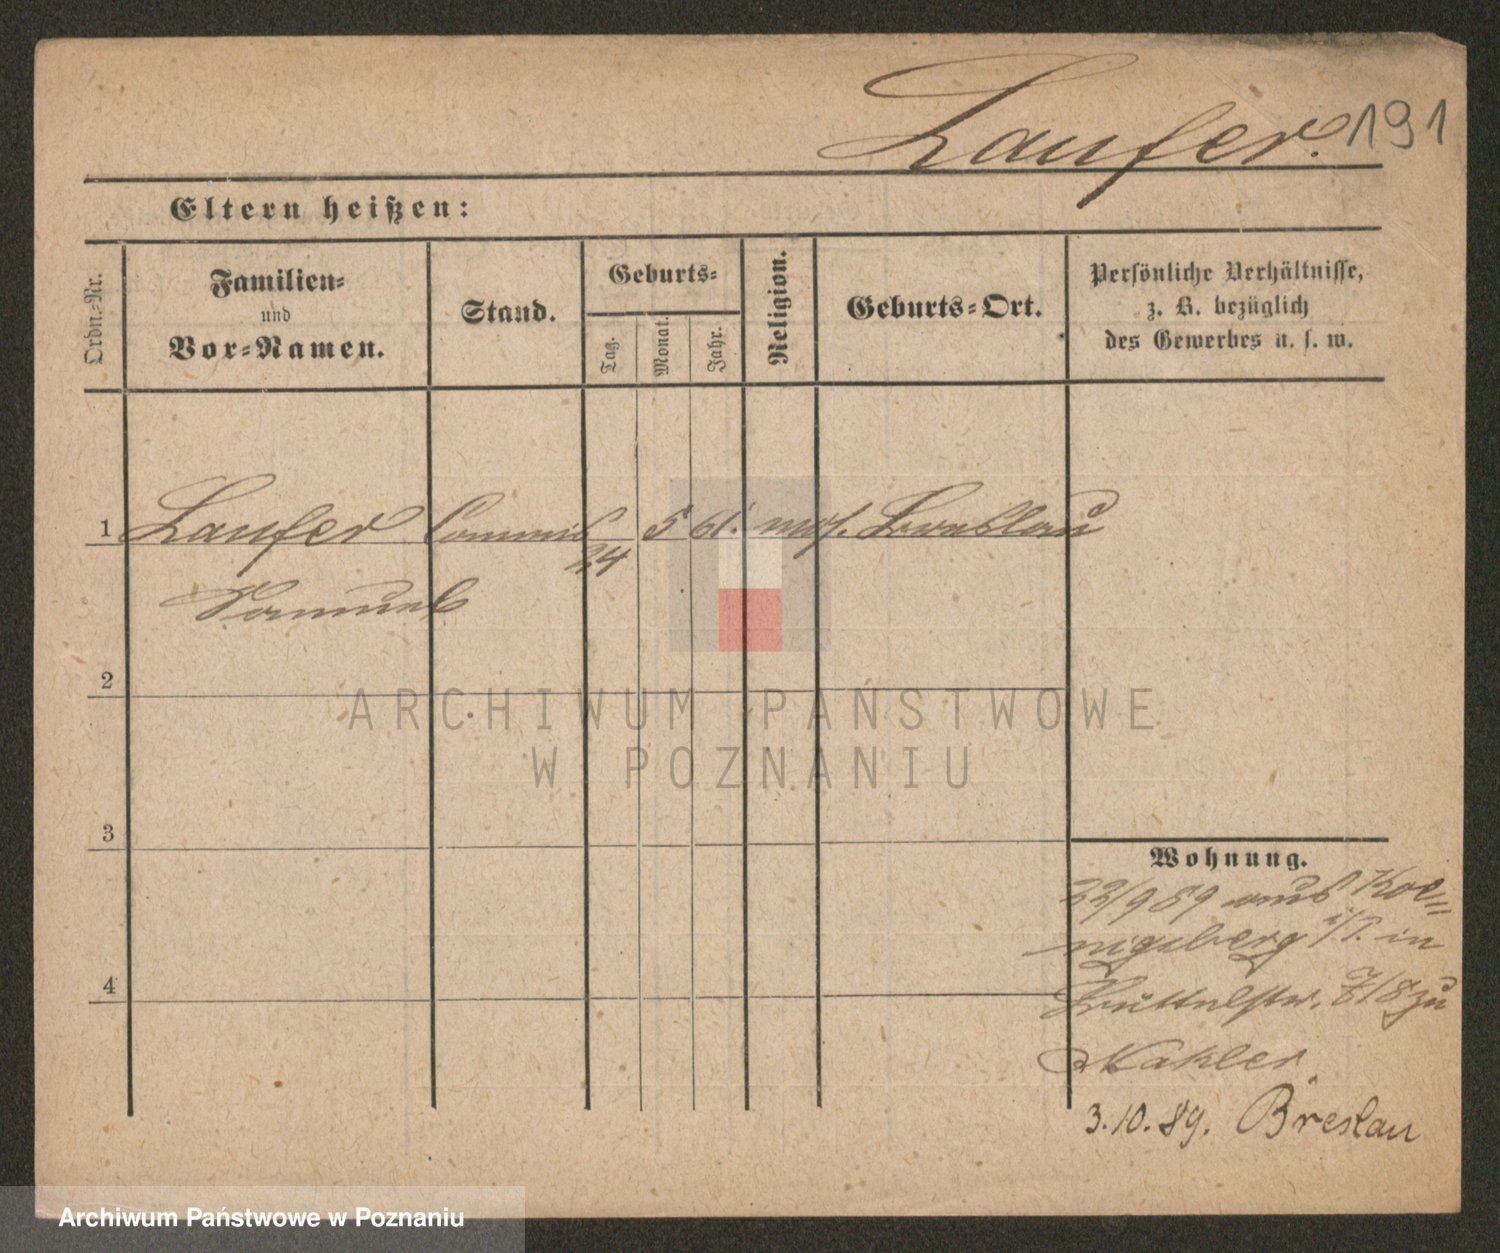 Laufer. 191
Eltern heißen:
Ordn.-Nr.
Familien-
und
Vor-Namen.
Stand.
Geburts-
Tag.
Monat.
Jahr.
Religion.
Geburts-Ort.
Persönliche Verhältnisse,
z. B. bezüglich
des Gewerbes u. s. w.
1 Laufer Commis 24 5 61. mos. Breslau
Samuel
2
3
4
ARCHIWUM PAŃSTWOWE
W POZNANIU
Wohnung.
23/9 89 aus Koe=
nigsberg i/P. in
7/8 zu
3.10.89. Breslau
Archiwum Państwowe w Poznaniu